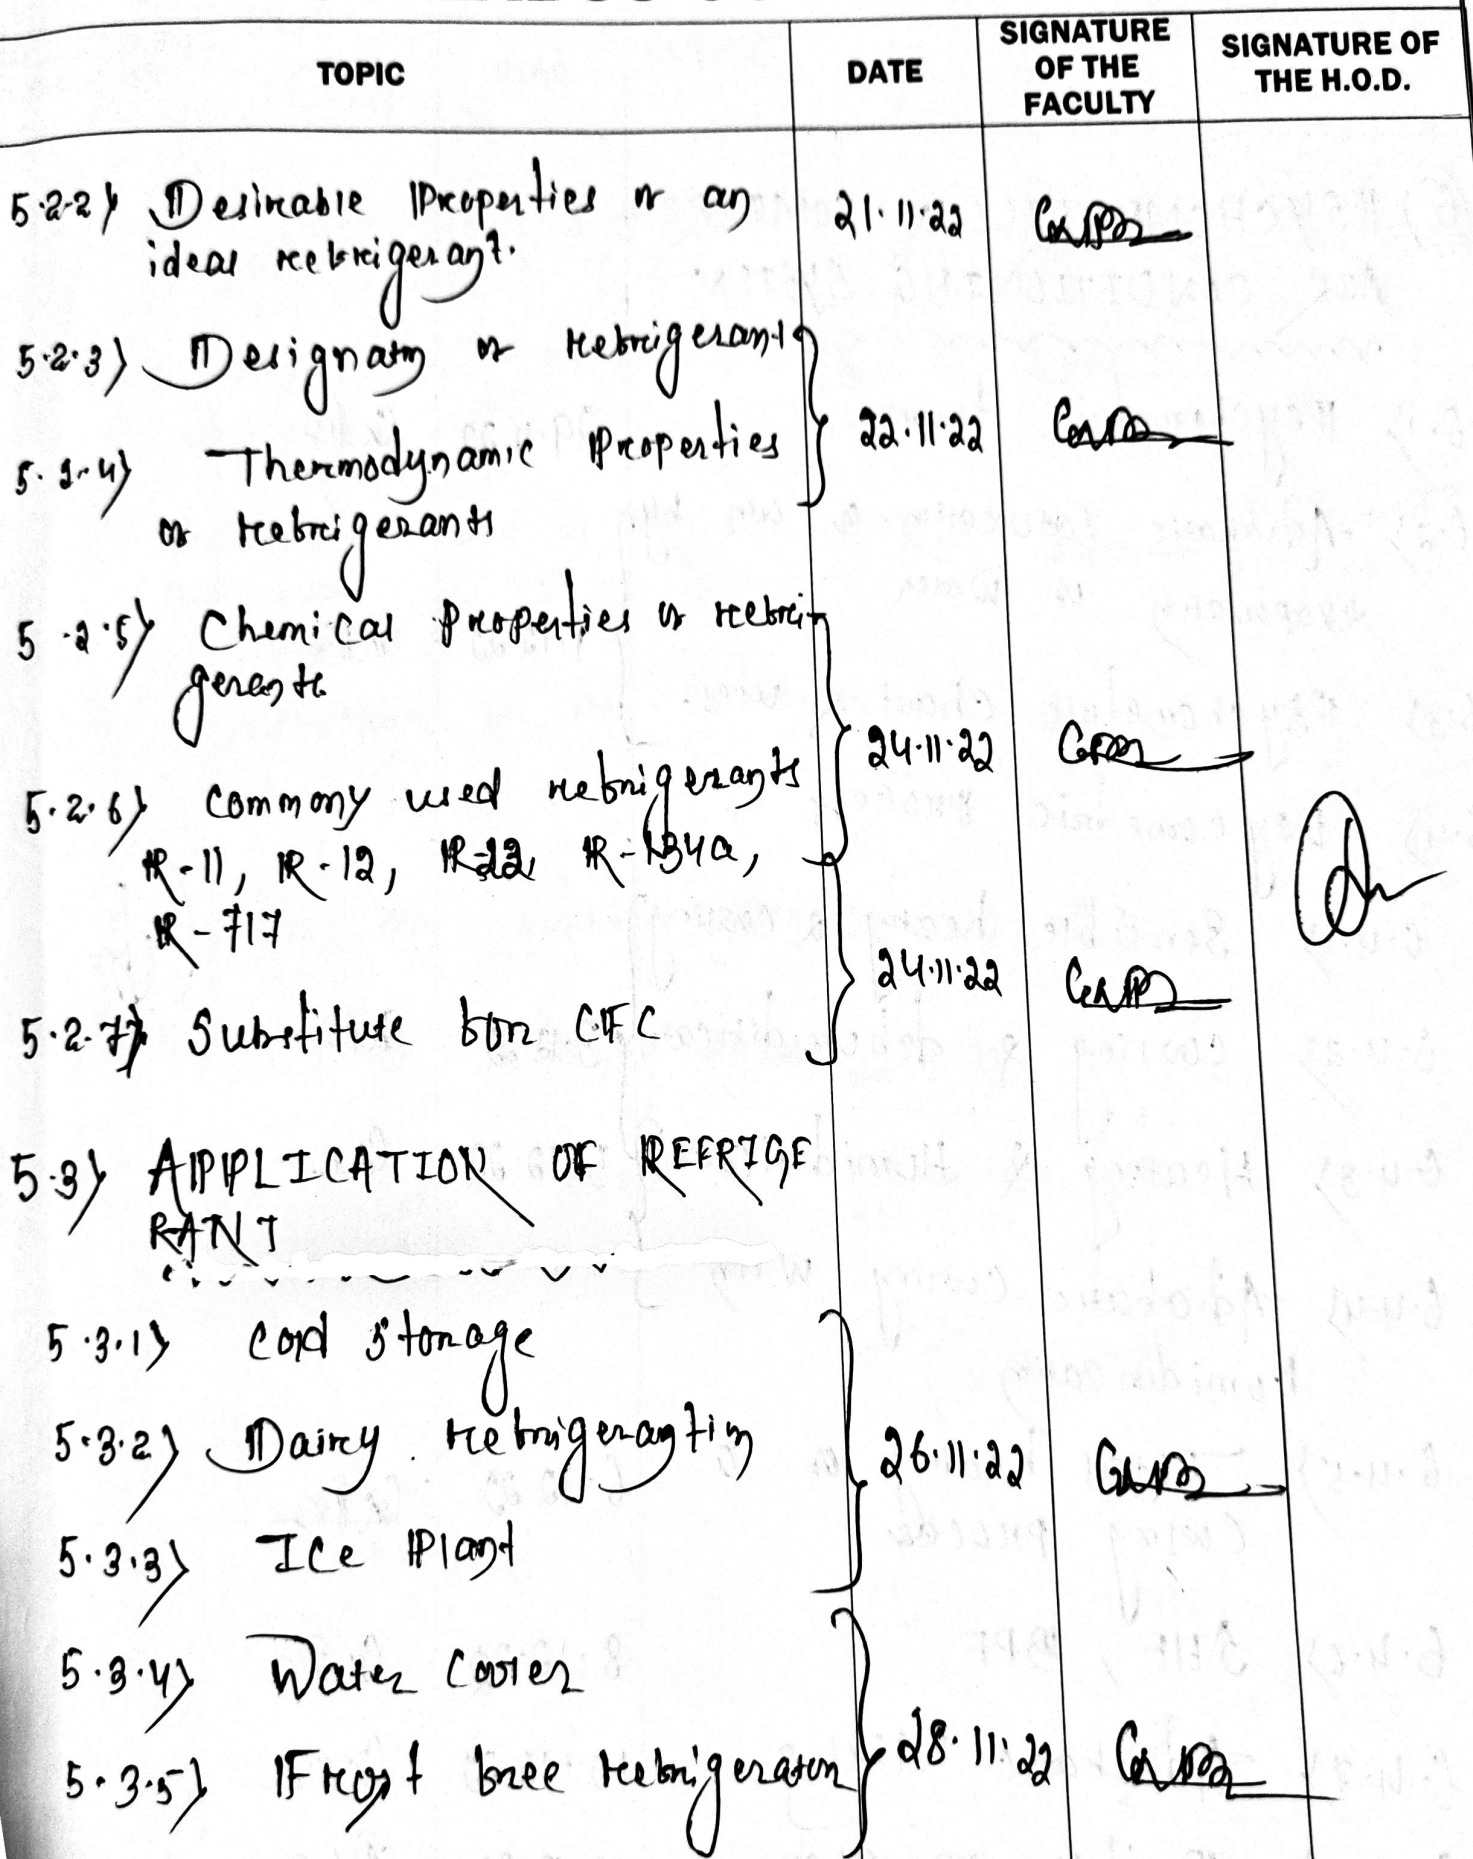 TOPIC DATE SIGNATURE OF THE FACULTY SIGNATURE OF THE H.O.D.
5.2.2) Desirable Properties of an 21.11.22
ideal refrigerant.
5.2.3) Designatn of refrigerant
5.2.4) Thermodynamic Properties 22.11.22
of refrigerants
5.2.5) Chemical Properties of refri
gerants
24.11.22
5.2.6) Commony used refrigerants
R-11, R-12, R-22, R-134a,
R-717
24.11.22
5.2.7) Substitute for CFC
5.3) APPLICATION OF REFRIGE
RANT
5.3.1) Cold Storage
5.3.2) Dairy refrigerantin 26.11.22
5.3.3) Ice Plant
5.3.4) Water Cooler
5.3.5) Frost free refrigerator 28.11.22